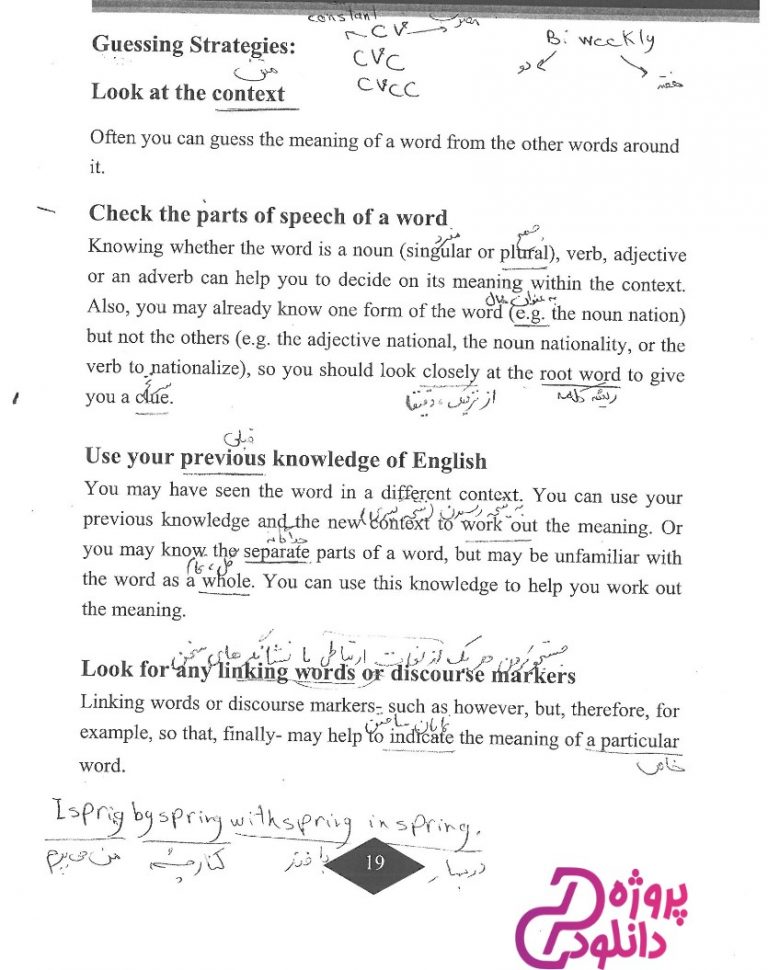 constant
CV مصوت
Guessing Strategies:
Bi weekly
CVC
دو
هفته
متن
CVCC
Look at the context
Often you can guess the meaning of a word from the other words around
it.
Check the parts of speech of a word
مفرد
جمع
Knowing whether the word is a noun (singular or plural), verb, adjective
or an adverb can help you to decide on its meaning within the context.
به عنوان مثال
Also, you may already know one form of the word (e.g. the noun nation)
but not the others (e.g. the adjective national, the noun nationality, or the
verb to nationalize), so you should look closely at the root word to give
you a clue.
از نزدیک، دقیقا
ریشه کلمه
قبلی
Use your previous knowledge of English
You may have seen the word in a different context. You can use your
previous knowledge and the new context to work out the meaning. Or
جداگانه
you may know the separate parts of a word, but may be unfamiliar with
the word as a whole. You can use this knowledge to help you work out
the meaning.
جستجو کردن هر یک از لغات ارتباطی یا نشانگر های سخن
Look for any linking words or discourse markers
Linking words or discourse markers- such as however, but, therefore, for
example, so that, finally- may help to indicate the meaning of a particular
خاص
word.
I sprig by spring with spring in spring.
من می پرم
کنار چشمه
با فنر
در بهار
19
پروژه
دانلود